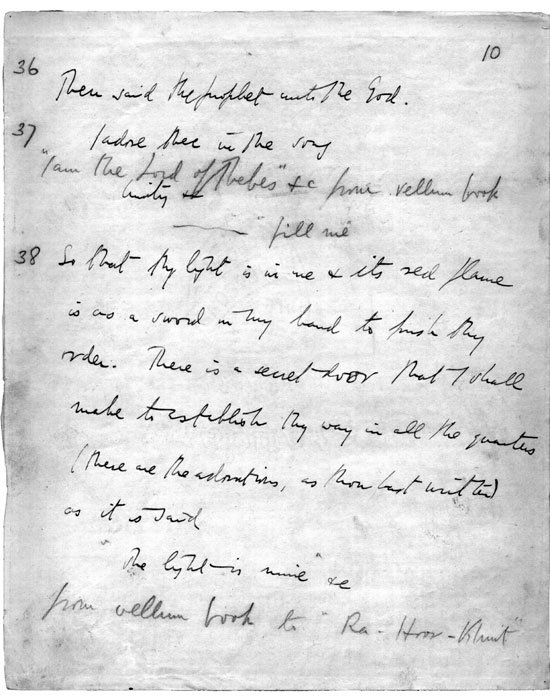 10
36
Then said the prophet unto the God.
37 I adore thee in the song
"I am the Lord of Thebes" &c from vellum book
Unity &c
——— "fill me"
38 So that thy light is in me & its red flame
is as a sword in my hand to push thy
order. There is a secret door that I shall
make to establish thy way in all the quarters
(these are the adorations, as thou hast written)
as it is said
"The light is mine" &c
from vellum book to "Ra-Hoor-Khuit"